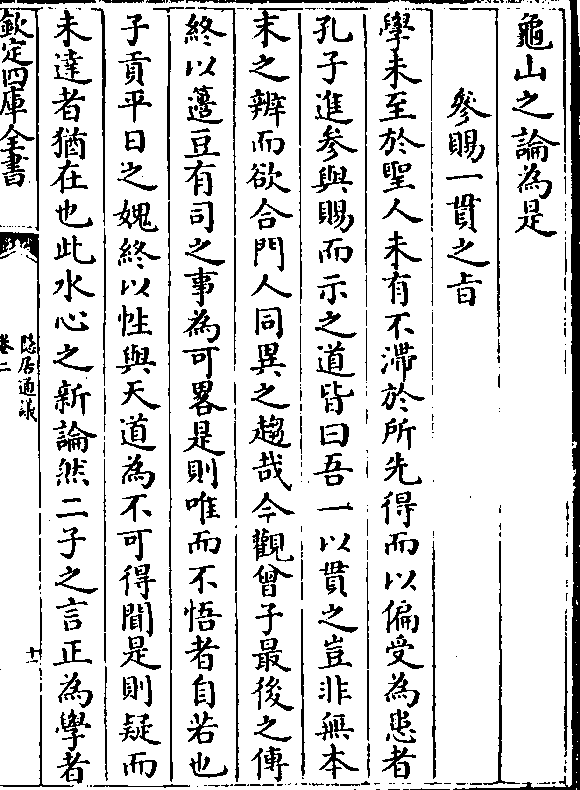 龜山之論為是
參賜一貫之旨
學未至於聖人未有不滯於所先得而以偏受為患者
孔子進參與賜而示之道皆曰吾一以貫之豈非無本
末之辨而欲合門人同異之趨哉今觀曾子最後之傳
終以籩豆有司之事為可畧是則唯而不悟者自若也
子貢平日之媿終以性與天道為不可得聞是則疑而
未達者猶在也此水心之新論然二子之言正為學者
欽定四庫全書
隱居通議
卷二
十一